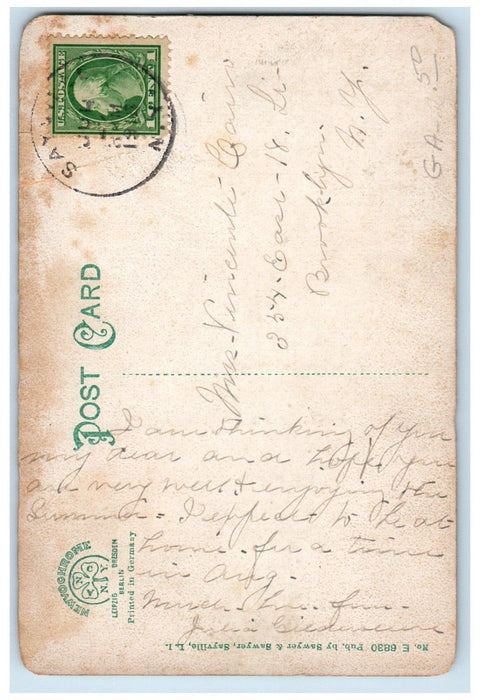 POST CARD
U.S. POSTAGE
1 CENT 1
Mrs. Vincente
854 East 18. St.
Brooklyn.
N. Y.
I am thinking of you
my dear and hope you
are very well & enjoying the
Summer. I expect to be at
home for a time
in Aug.
Much love from
Julia
NEWVOCHROME
N.Y.C.
N.Y.
LEIPZIG DRESDEN
BERLIN
Printed in Germany
No. E 6830 Pub. by Sawyer & Sawyer, Sayville, L. I.